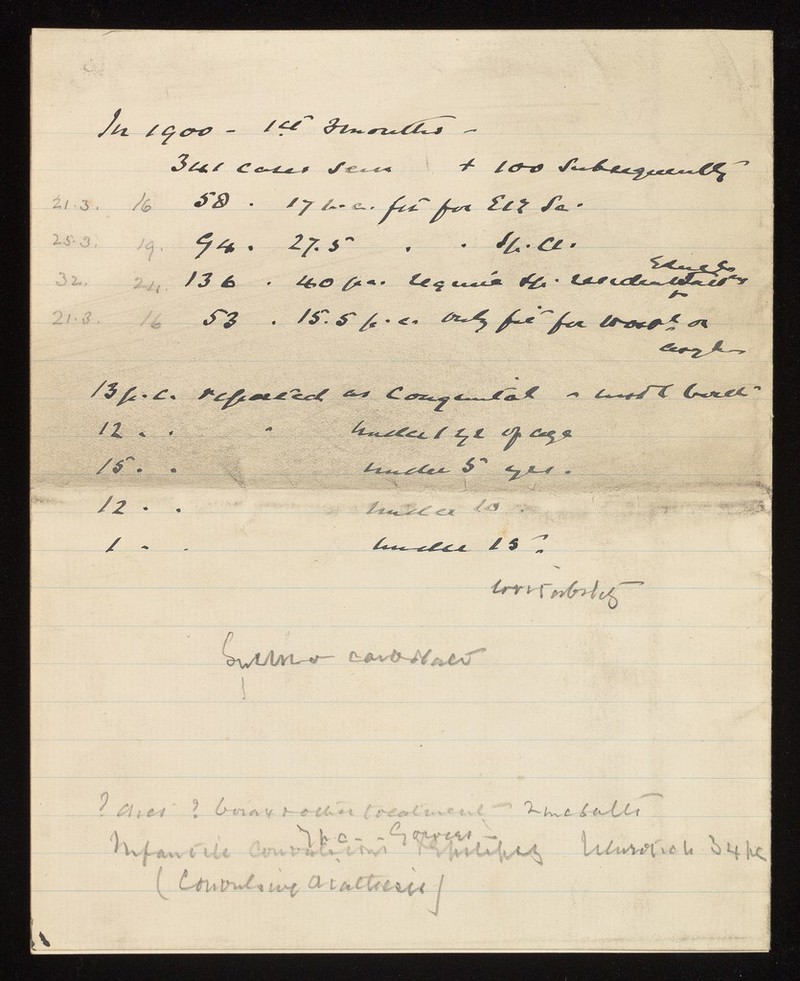 In 1900 - 1st 3 months -
341 cases seen + 100 subsequently
21.3. 16 58 . 17 p.c. fit for Ely Sc.
25.3. 19. 94 . 27.5 . . Sp. Cl.
32. 24. 136 . 40 p.c. require sp. residential
21.3. 16 53 . 15.5 p.c. only fit for workh or
asylum
13 p.c. reported as congenital -
12 . . . under 1 yr of age
15 . . under 5 yrs.
12 . . under 10 .
1 . . under 15 .
? diet ? borax & other treatment - Zinc salts
7 p.c. - Gowers -
Infantile convulsions epilepsy 34 pc
(Convulsive diathesis)